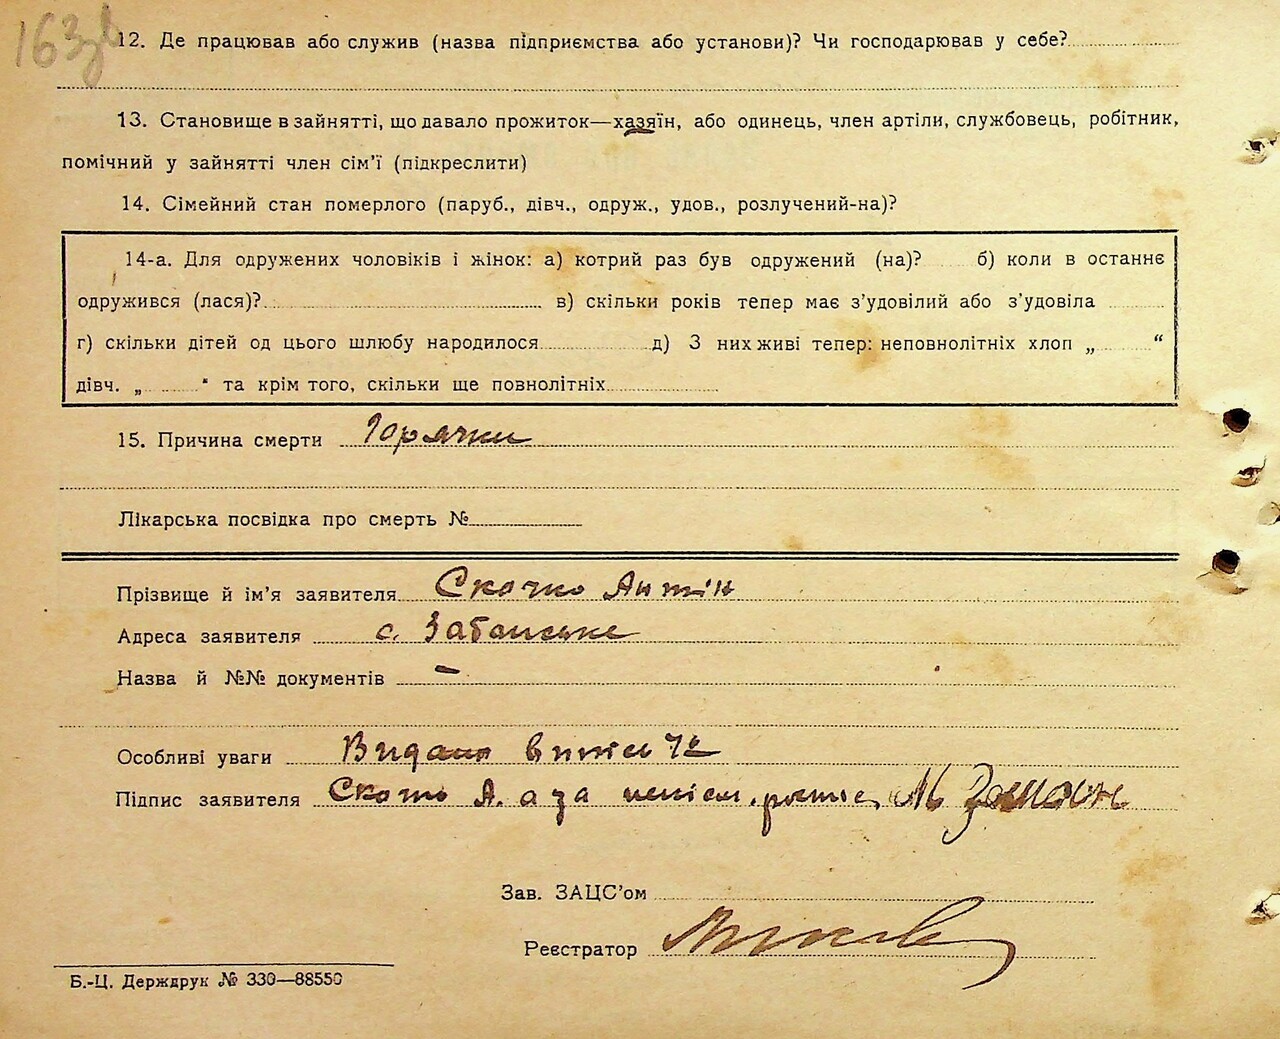 163зв
12. Де працював або служив (назва підприємства або установи)? Чи господарював у себе?
13. Становище в зайнятті, що давало прожиток—хазяїн, або одинець, член артіли, службовець, робітник,
помічний у зайнятті член сім’ї (підкреслити)
14. Сімейний стан померлого (паруб., дівч., одруж., удов., розлучений-на)?
14-а. Для одружених чоловіків і жінок: а) котрий раз був одружений (на)? б) коли в останнє
одружився (лася)? в) скільки років тепер має з’удовілий або з’удовіла
г) скільки дітей од цього шлюбу народилося д) З них живі тепер: неповнолітніх хлоп „ “
дівч. „ “ та крім того, скільки ще повнолітніх
15. Причина смерти Горячки
Лікарська посвідка про смерть №
Прізвище й ім’я заявителя Скочко Антін
Адреса заявителя с.
Назва й №№ документів –
Особливі уваги Видана
Підпис заявителя А. а за
Зав. ЗАЦС’ом
Реєстратор
Б.-Ц. Держдрук № 330—88550